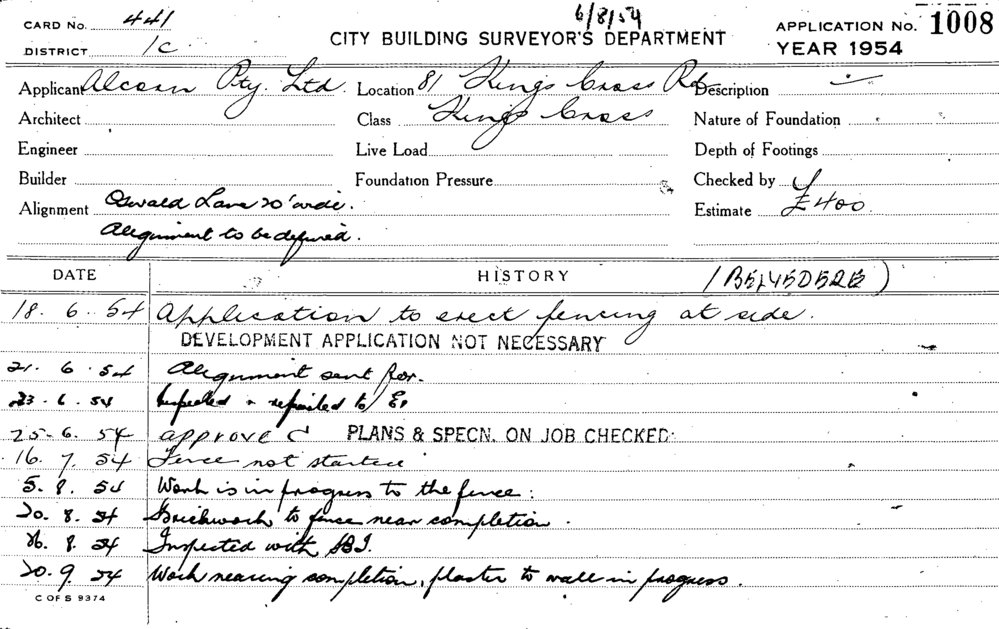 CARD No. 441
6/8/54
APPLICATION No. 1008
DISTRICT 1C
CITY BUILDING SURVEYOR'S DEPARTMENT
YEAR 1954
Applicant Alcorn Pty. Ltd. Location 81 Kings Cross Rd Description
Architect Class Kings Cross Nature of Foundation
Engineer Live Load Depth of Footings
Builder Foundation Pressure Checked by
Alignment Oswald Lane 20' wide. Estimate £400
Alignment to be defined.
DATE HISTORY (BELVEDERE)
18. 6. 54 Application to erect fencing at side.
DEVELOPMENT APPLICATION NOT NECESSARY
21. 6. 54 Alignment sent for.
23. 6. 54 Inspected & reported to
25. 6. 54 approved PLANS & SPECN. ON JOB CHECKED
16. 7. 54 Fence not started
5. 8. 54 Work is in progress to the fence.
20. 8. 54 Brickwork to fence near completion.
8. 54 Inspected with
20. 9. 54 Work nearing completion, plaster to wall in progress.
C OF S 9374